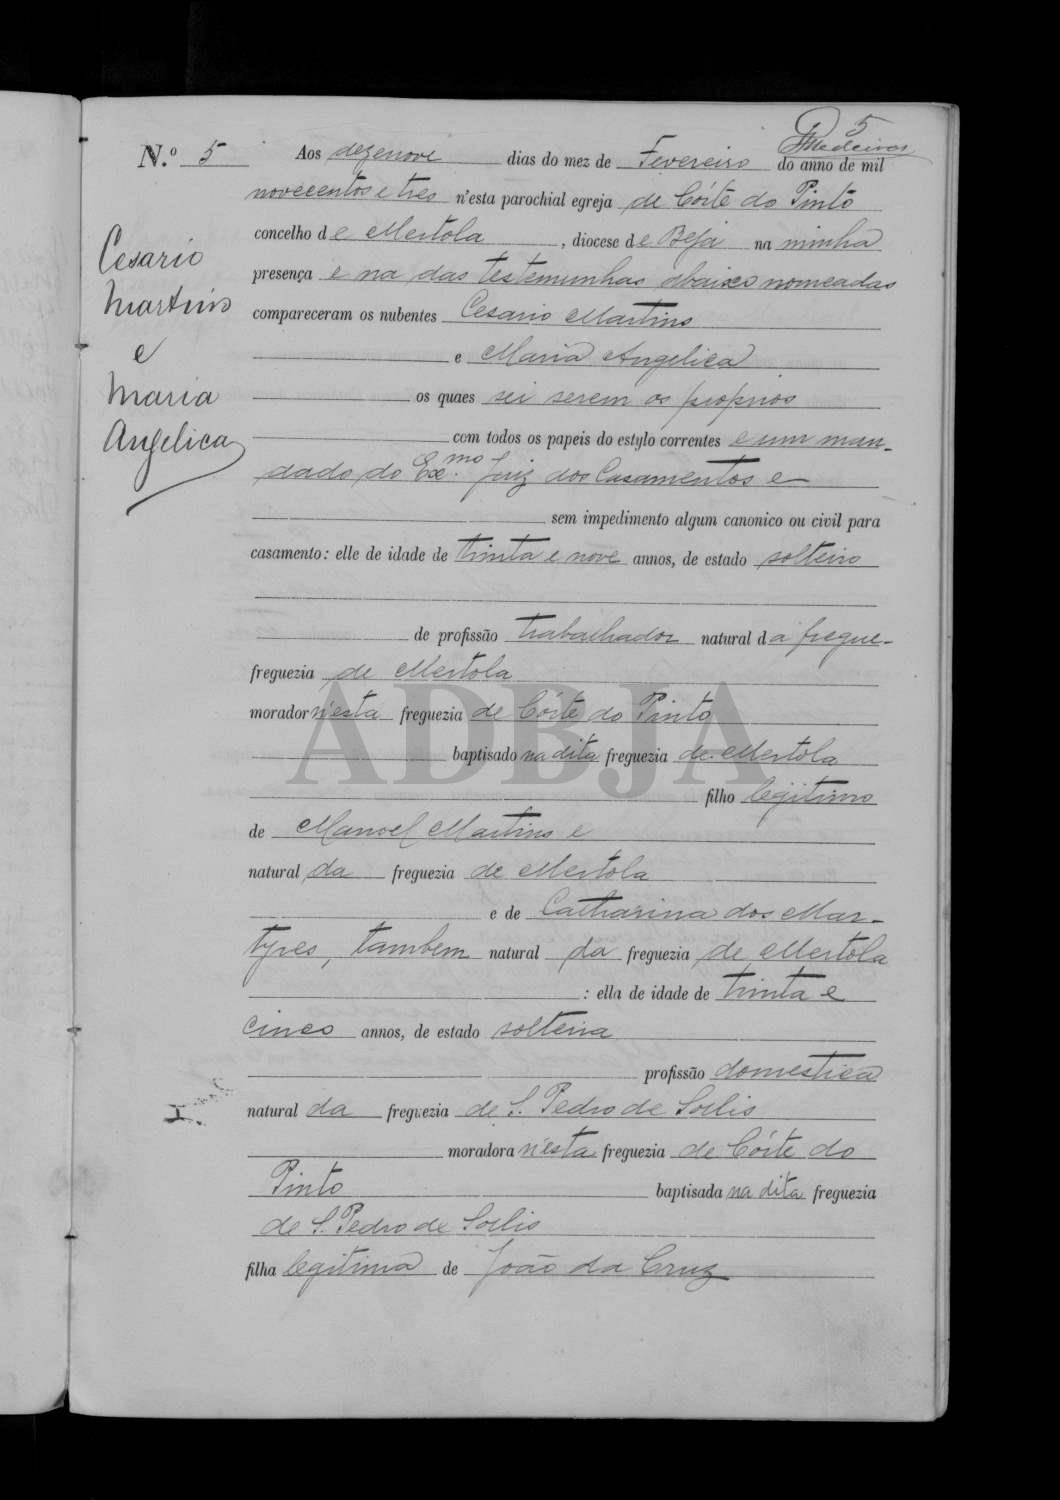 5
Medeiros
N.º 5 Aos dezenove dias do mez de Fevereiro do anno de mil
novecentos e tres n'esta parochial egreja de Córte do Pinto
concelho de Mertola, diocese de Beja na minha
presença e na das testemunhas abaixo nomeadas
compareceram os nubentes Cesario Martins
e Maria Angelica
os quaes sei serem os proprios
com todos os papeis do estylo correntes e um man-
dado do Ex.mo Juiz dos Casamentos e
sem impedimento algum canonico ou civil para
casamento: elle de idade de trinta e nove annos, de estado solteiro
de profissão trabalhador natural da fregue-
freguezia de Mertola
morador n'esta freguezia de Córte do Pinto
baptisado na dita freguezia de Mertola
filho legitimo
de Manoel Martins e
natural da freguezia de Mertola
e de Catharina dos Mar-
tyres, tambem natural da freguezia de Mertola
: ella de idade de trinta e
cinco annos, de estado solteira
profissão domestica
natural da freguezia de S. Pedro de Sollis
moradora n'esta freguezia de Córte do
Pinto baptisada na dita freguezia
de S. Pedro de Sollis
filha legitima de João da Cruz
Cesario
Martins
e
Maria
Angelica
ADBJA